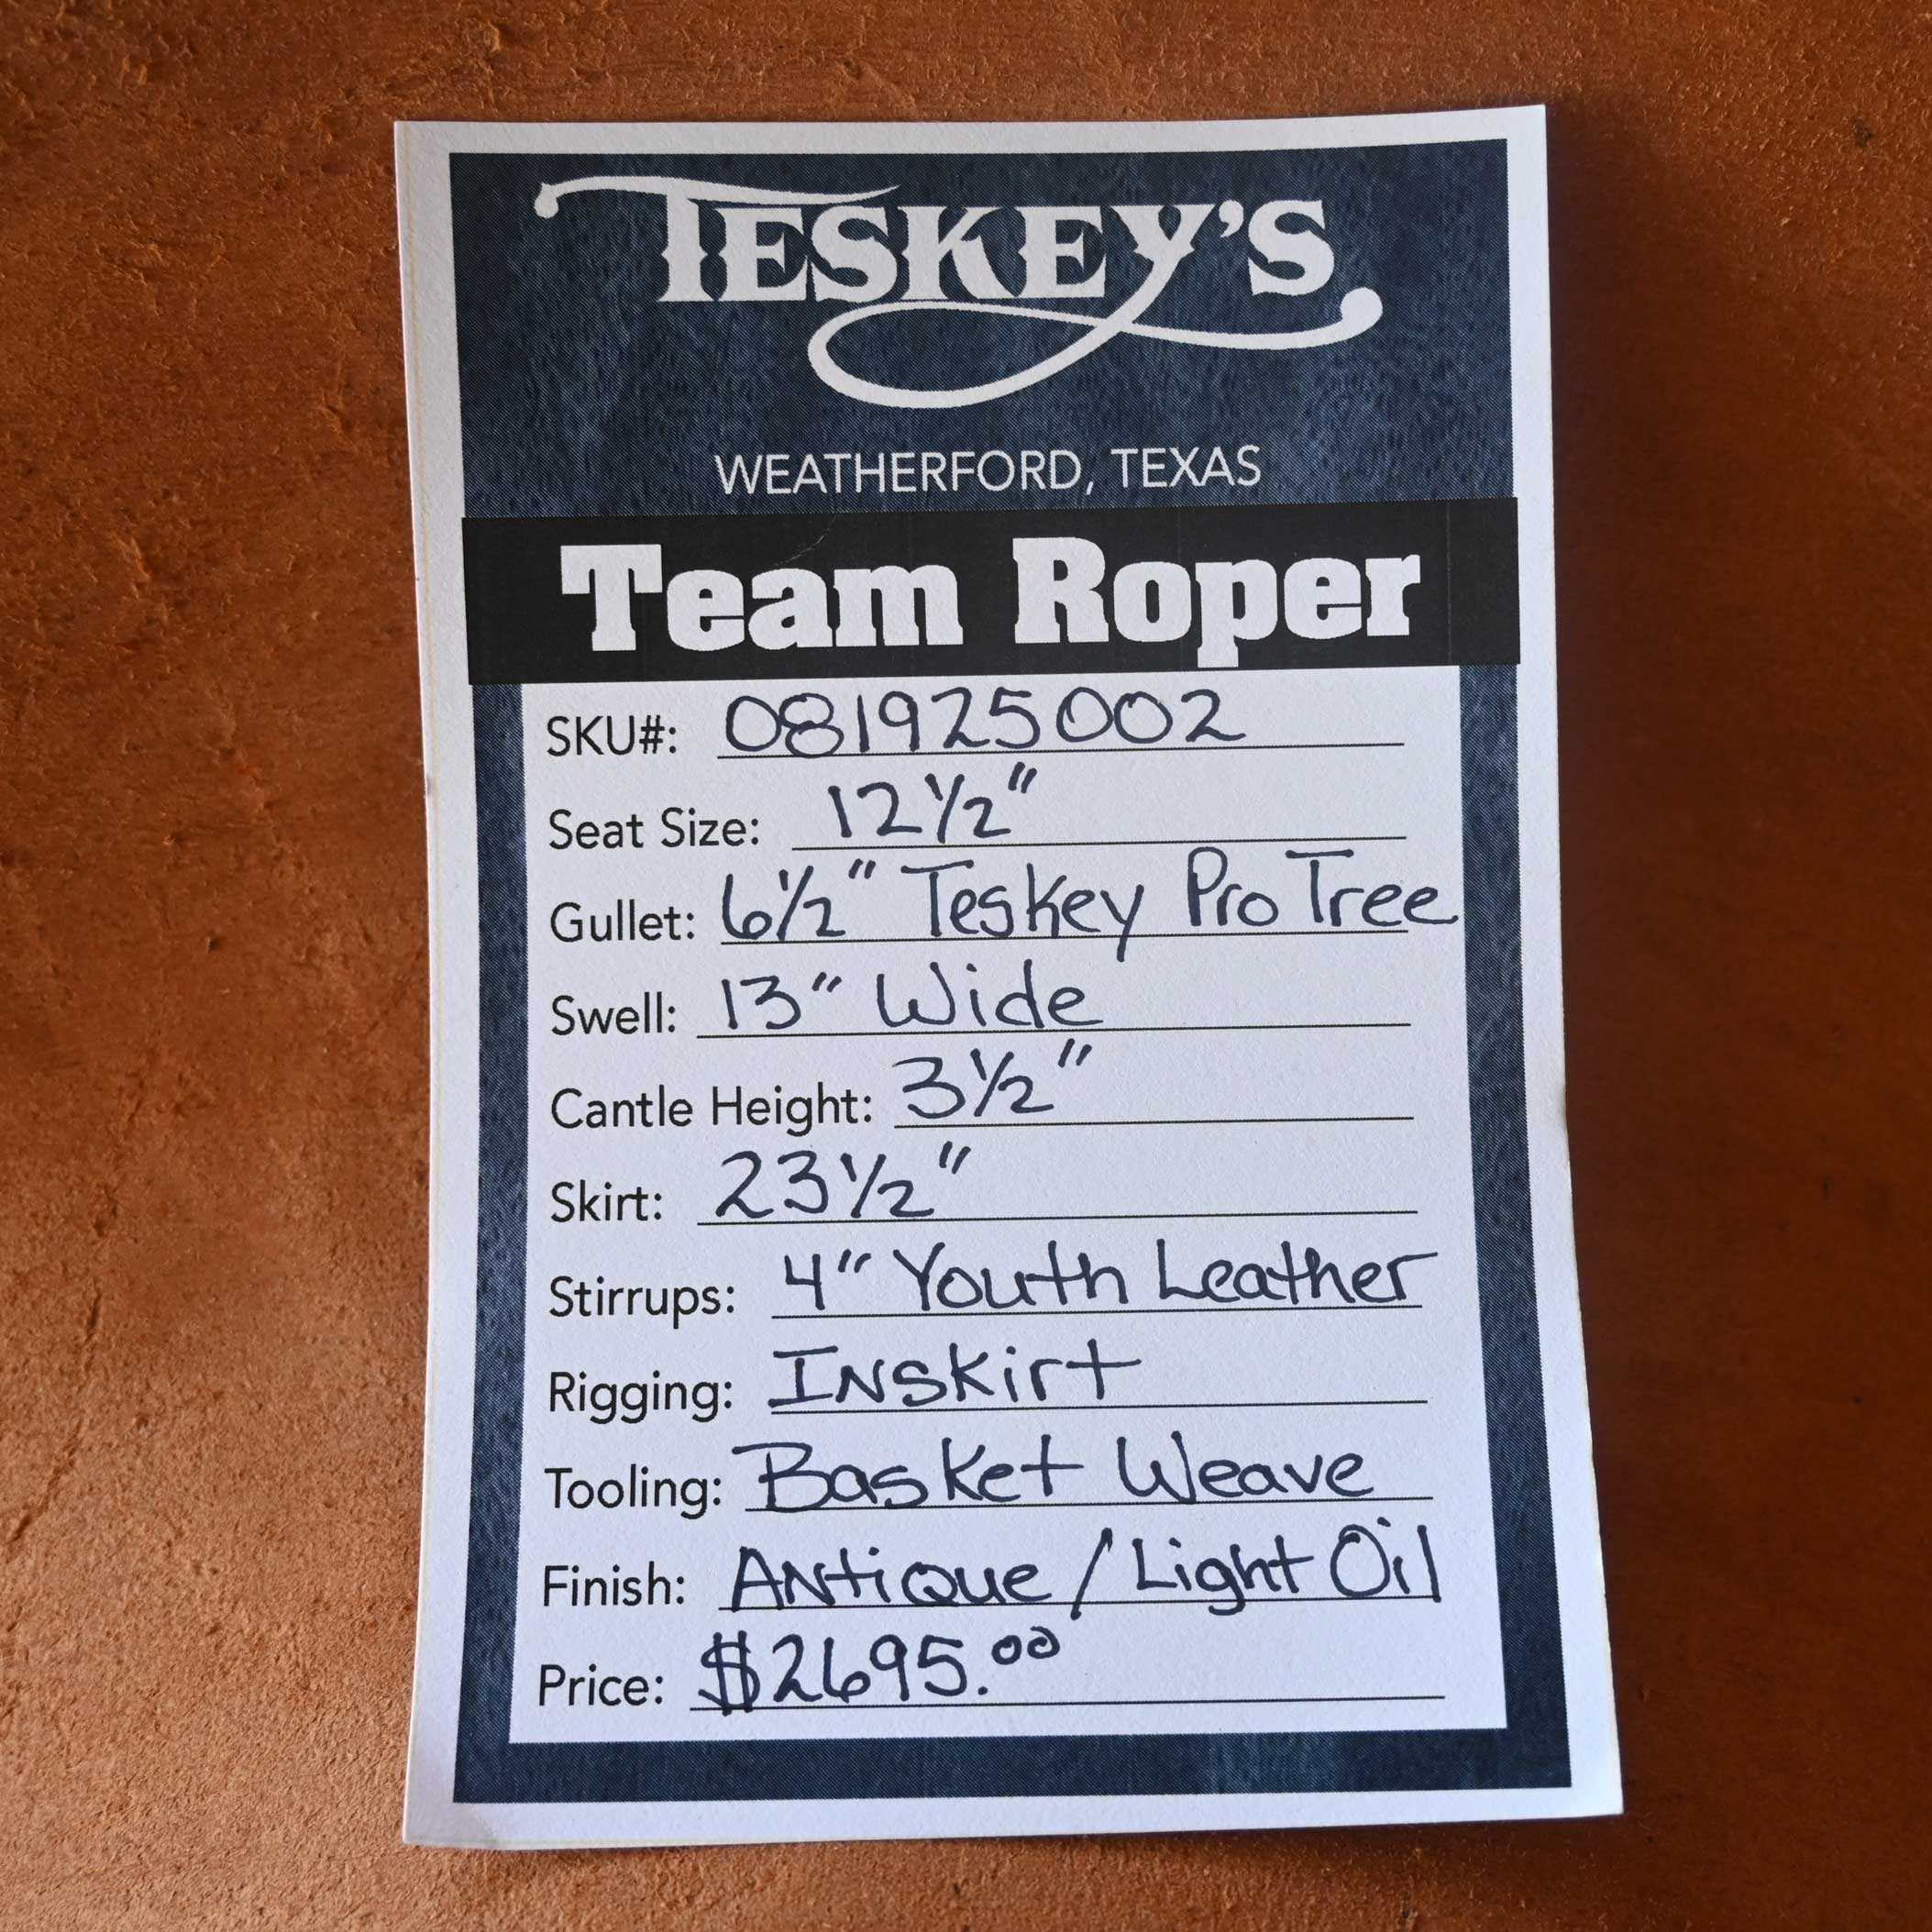 TESKEY'S
WEATHERFORD, TEXAS
Team Roper
SKU#: 081925002
Seat Size: 12 1/2"
Gullet: 6 1/2" Teskey Pro Tree
Swell: 13" Wide
Cantle Height: 3 1/2"
Skirt: 23 1/2"
Stirrups: 4" Youth Leather
Rigging: Inskirt
Tooling: Basket Weave
Finish: Antique / Light Oil
Price: $2695.00